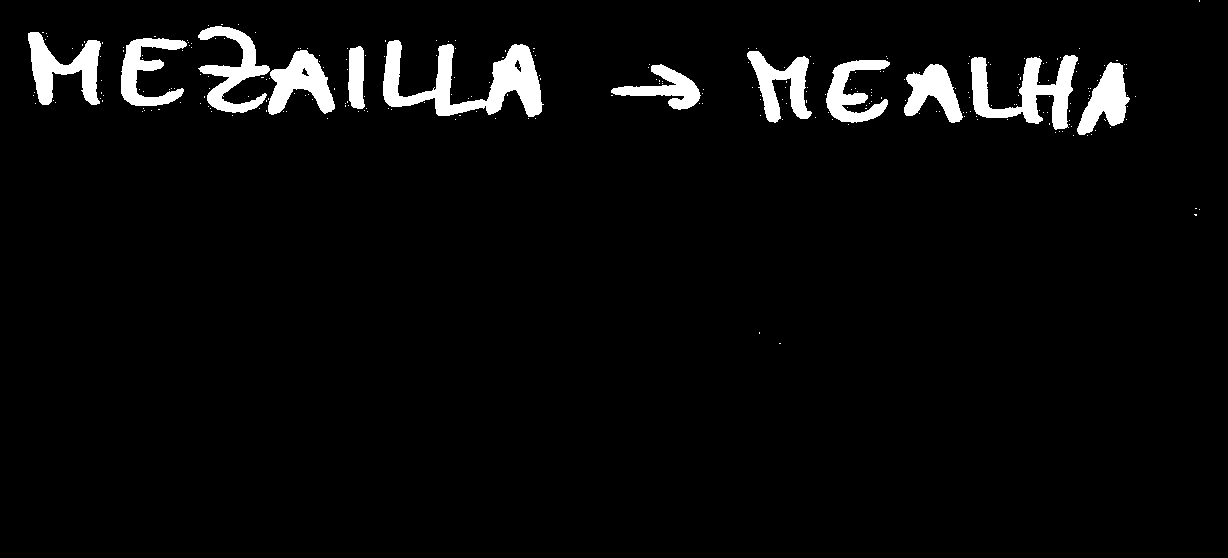 MEZAILLA → MEALHA